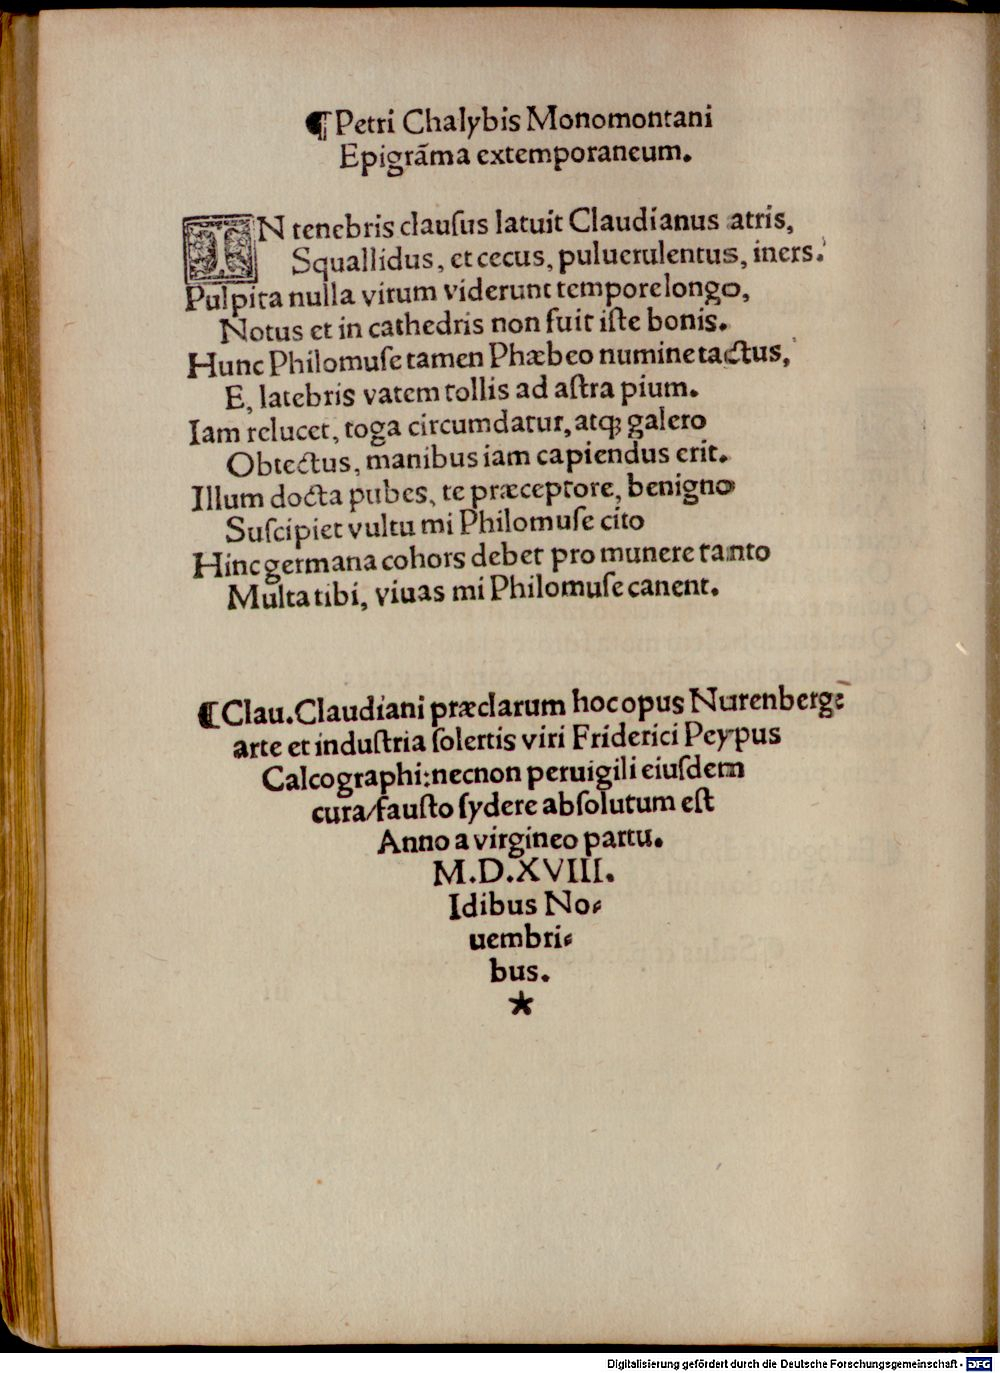 ¶ Petri Chalybis Monomontani
Epigrãma extemporaneum.
IN tenebris clauſus latuit Claudianus atris,
Squallidus, et cecus, puluerulentus, iners.
Pulpita nulla virum viderunt tempore longo,
Notus et in cathedris non fuit iſte bonis.
Hunc Philomuſe tamen Phæbeo numine tactus,
E, latebris vatem tollis ad aſtra pium.
Iam relucet, toga circumdatur, atq; galero
Obtectus, manibus iam capiendus erit.
Illum docta pubes, te præceptore, benigno
Suſcipiet vultu mi Philomuſe cito
Hinc germana cohors debet pro munere tanto
Multa tibi, viuas mi Philomuſe canent.
¶ Clau. Claudiani præclarum hoc opus Nurenbergę
arte et induſtria ſolertis viri Friderici Peypus
Calcographi: necnon peruigili eiuſdem
cura/fauſto ſydere abſolutum eſt
Anno a virgineo partu.
M.D.XVIII.
Idibus No⸗
uembri⸗
bus.
★
Digitalisierung gefördert durch die Deutsche Forschungsgemeinschaft - DFG